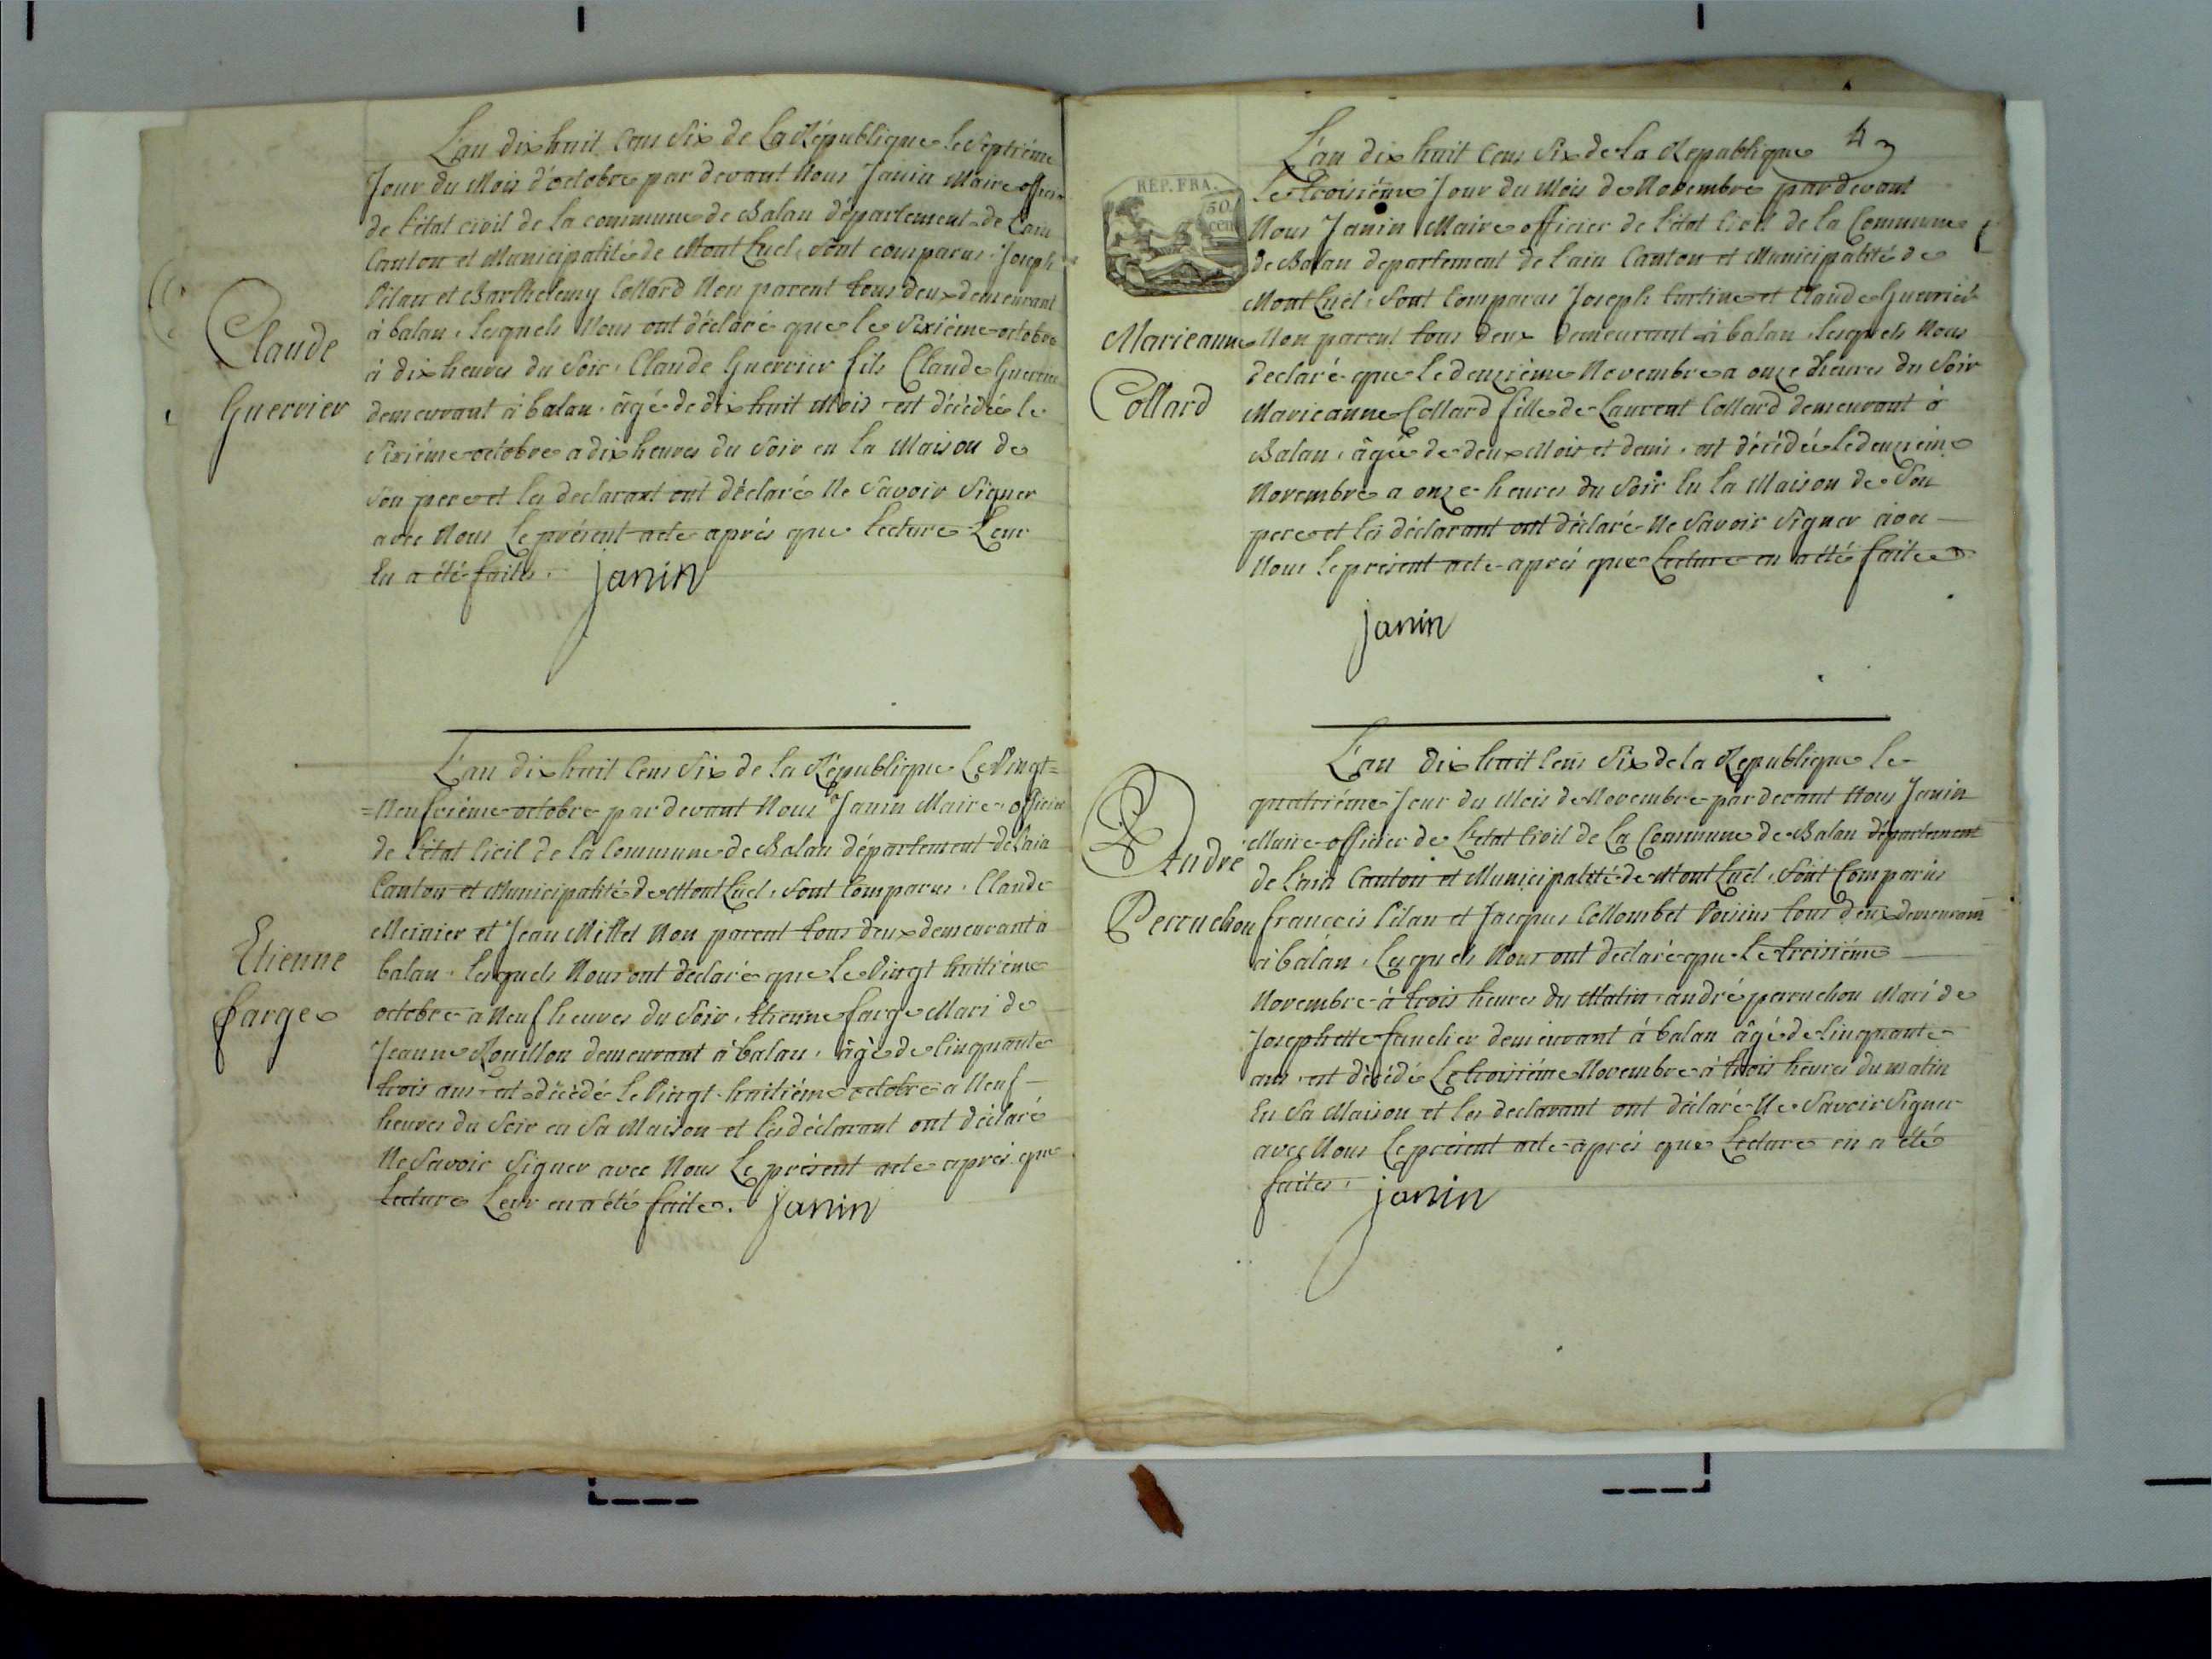 L'an dix huit Cens Six de La République le Septième
Jour du Mois d'octobre par devant Nous Janin Maire officier
de l'état civil de la commune de Balan département de L'ain
Canton et Municipalité de Mont Luel, Sont comparus Joseph
Pilan et Barthelemy Collard Non parent tous deux demeurant
à balan, lesquels Nous ont déclaré que le Sixième octobre
à dix heures du Soir, Claude Guerrier fils Claude Guerrier
demeurant à balan, âgé de dix huit Mois est décédé le
Sixième octobre a dix heures du Soir en la Maison de
Son pere et les declarant ont déclaré Ne Savoir Signer
avec Nous Le présent acte après que lecture Leur
En a été faite. janin
Claude
Guerrier
L'an dix huit Cens Six de la République Le Vingt=
=Neufvième octobre par devant Nous Janin Maire officier
de L'état Civil de la Commune de Balan département de L'ain
Canton et Municipalité de Mont Luel, Sont Comparus, Claude
Meinier et Jean Millet Non parent tous deux demeurant à
balan, lesquels Nous ont déclaré que le Vingt huitième
octobre a Neuf heures du Soir, Etienne farge Mari de
Jeanne Rouillon demeurant à balan, âgé de Cinquante
trois ans est décédé le Vingt huitième octobre a Neuf
heures du Soir en Sa Maison et les déclarant ont déclaré
Ne Savoir Signer avec Nous Le présent acte après que
lecture Leur en a été faite. janin
Etienne
farge
4
REP. FRA.
50
cen
L'an dix huit Cens Six de la Republique
Le troisième Jour du Mois de Novembre par devant
Nous Janin Maire officier de l'état Civil de la Commune
de Balan departement de l'ain Canton et Municipalité de
Mont Luel, Sont Comparus Joseph et Claude Guerrier
Non parent tous deux demeurant à balan, lesquels Nous
declaré que le deuxième Novembre a onze heures du Soir
Marieanne Collard fille de Laurent Collard demeurant à
Balan, âgée de deux Mois et demi, est décédée le deuxième
Novembre a onze heures du Soir En la Maison de Son
pere et les déclarant ont déclaré Ne Savoir Signer avec
Nous le présent acte après que Lecture en a été faite
janin
Marieanne
Collard
L'an dix huit Cens Six de la Republique le
quatrième Jour du Mois de Novembre par devant Nous Janin
Maire officier de L'état Civil de la Commune de Balan département
de L'ain Canton et Municipalité de Mont Luel, Sont Comparus
francois Pilan et Jacques Collombet Voisins tous deux demeurant
à balan, Lesquels Nous ont declaré que Le troisième
Novembre à trois heures du Matin, andré perruchon Mari de
Josephette demeurant à balan âgé de Cinquante
ans, est décédé Le troisième Novembre à trois heures du matin
En Sa Maison et les declarant ont déclaré Ne Savoir Signer
avec Nous Le présent acte après que Lecture en a été
faite. janin
André
Perruchon